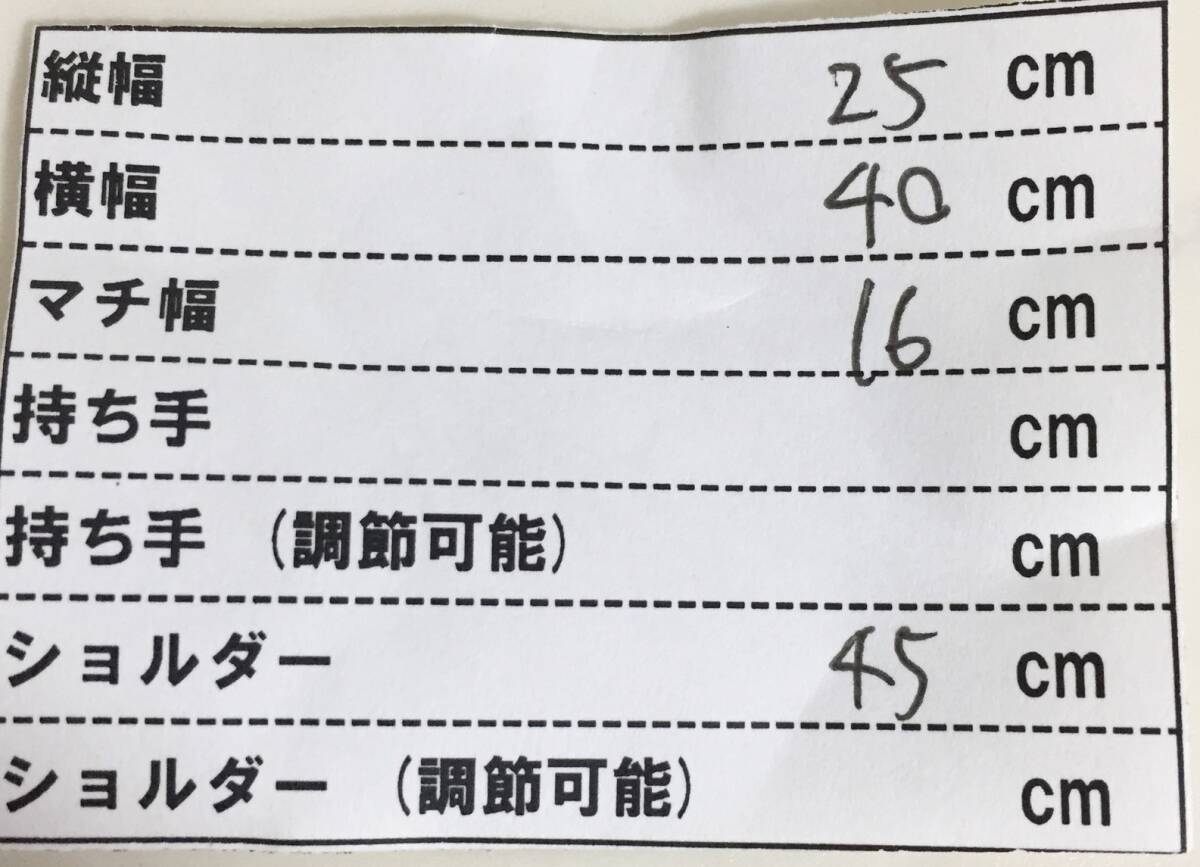 縦幅 25 cm
横幅 40 cm
マチ幅 16 cm
持ち手 cm
持ち手 (調節可能) cm
ショルダー 45 cm
ショルダー (調節可能) cm